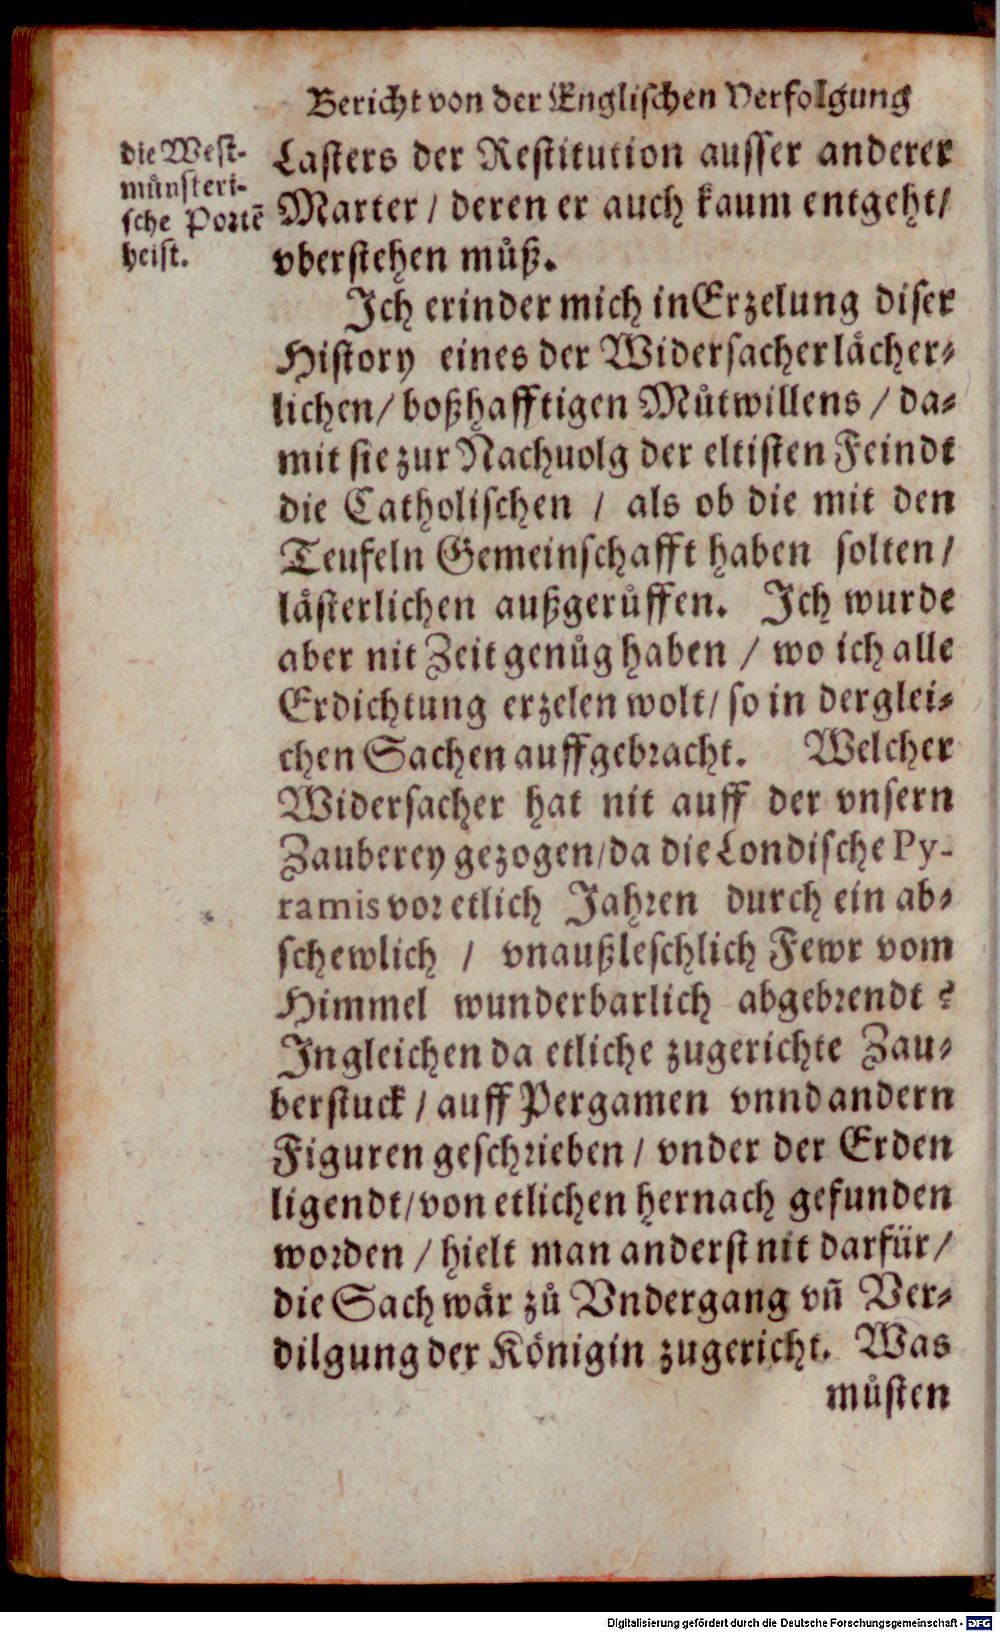 Bericht von der Englischen Verfolgung
die West-
münsteri-
sche Portē
heist.
Lasters der Restitution ausser anderer
Marter / deren er auch kaum entgeht/
vberstehen můß.
Ich erinder mich in Erzelung diser
History eines der Widersacher lächer-
lichen/ boßhafftigen Můtwillens / da-
mit sie zur Nachuolg der eltisten Feindt
die Catholischen / als ob die mit den
Teufeln Gemeinschafft haben solten/
lästerlichen außgerůffen. Ich wurde
aber nit Zeit genůg haben / wo ich alle
Erdichtung erzelen wolt/ so in derglei-
chen Sachen auffgebracht. Welcher
Widersacher hat nit auff der vnsern
Zauberey gezogen/da die Londische Py-
ramis vor etlich Jahren durch ein ab-
schewlich / vnaußleschlich Fewr vom
Himmel wunderbarlich abgebrendt?
Ingleichen da etliche zugerichte Zau-
berstuck / auff Pergamen vnnd andern
Figuren geschrieben / vnder der Erden
ligendt/von etlichen hernach gefunden
worden / hielt man anderst nit darfür/
die Sach wår zů Vndergang vñ Ver-
dilgung der Königin zugericht. Was
můsten
Digitalisierung gefördert durch die Deutsche Forschungsgemeinschaft - DFG